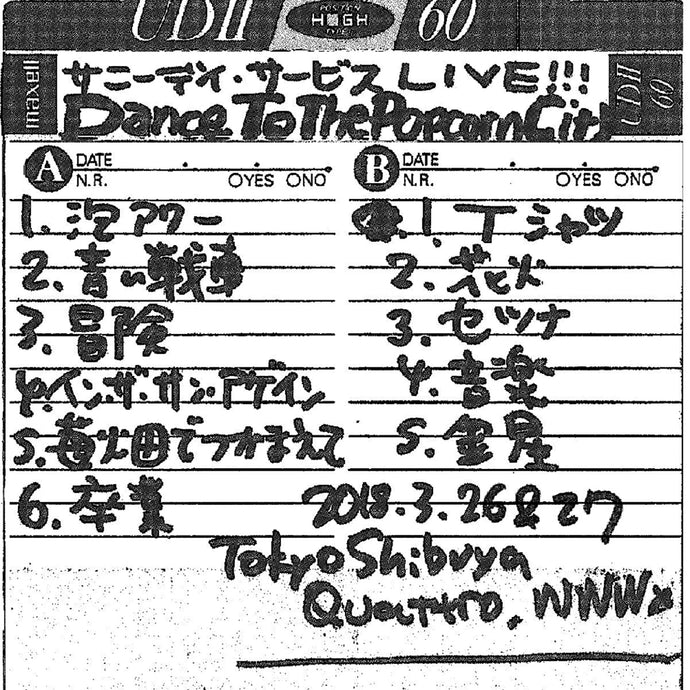 UDII POSITION HIGH TYPE 60
maxell
サニーデイ・サービス LIVE!!!
Dance To The Popcorn City
UDII 60
A DATE . .
N.R. OYES ONO
1. 泡アワー
2. 青い戦車
3. 冒険
4. イン・ザ・サン・アゲイン
5. 苺畑でつかまえて
6. 卒業
B DATE . .
N.R. OYES ONO
1. Tシャツ
2. 花火
3. セツナ
4. 音楽
5. 金星
2018.3.26&27
Tokyo Shibuya
Quattro, WWWx